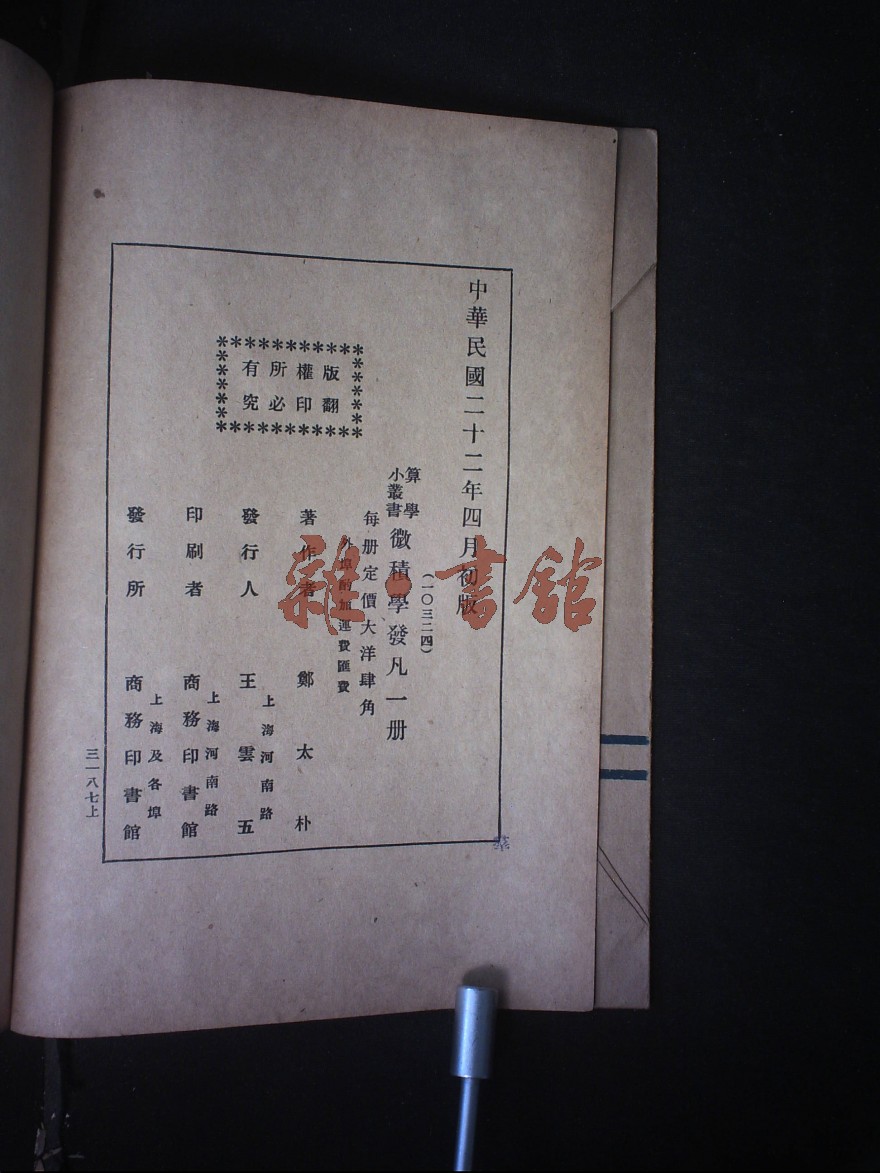 中華民國二十二年四月初版
(一〇三二四)
算學
小叢書
微積學發凡一册
每册定價大洋肆角
外埠酌加運費匯費
版權所有
翻印必究
著作者 鄭太朴
上海河南路
發行人 王雲五
上海河南路
印刷者 商務印書館
上海及各埠
發行所 商務印書館
三一八七上
雜·書館